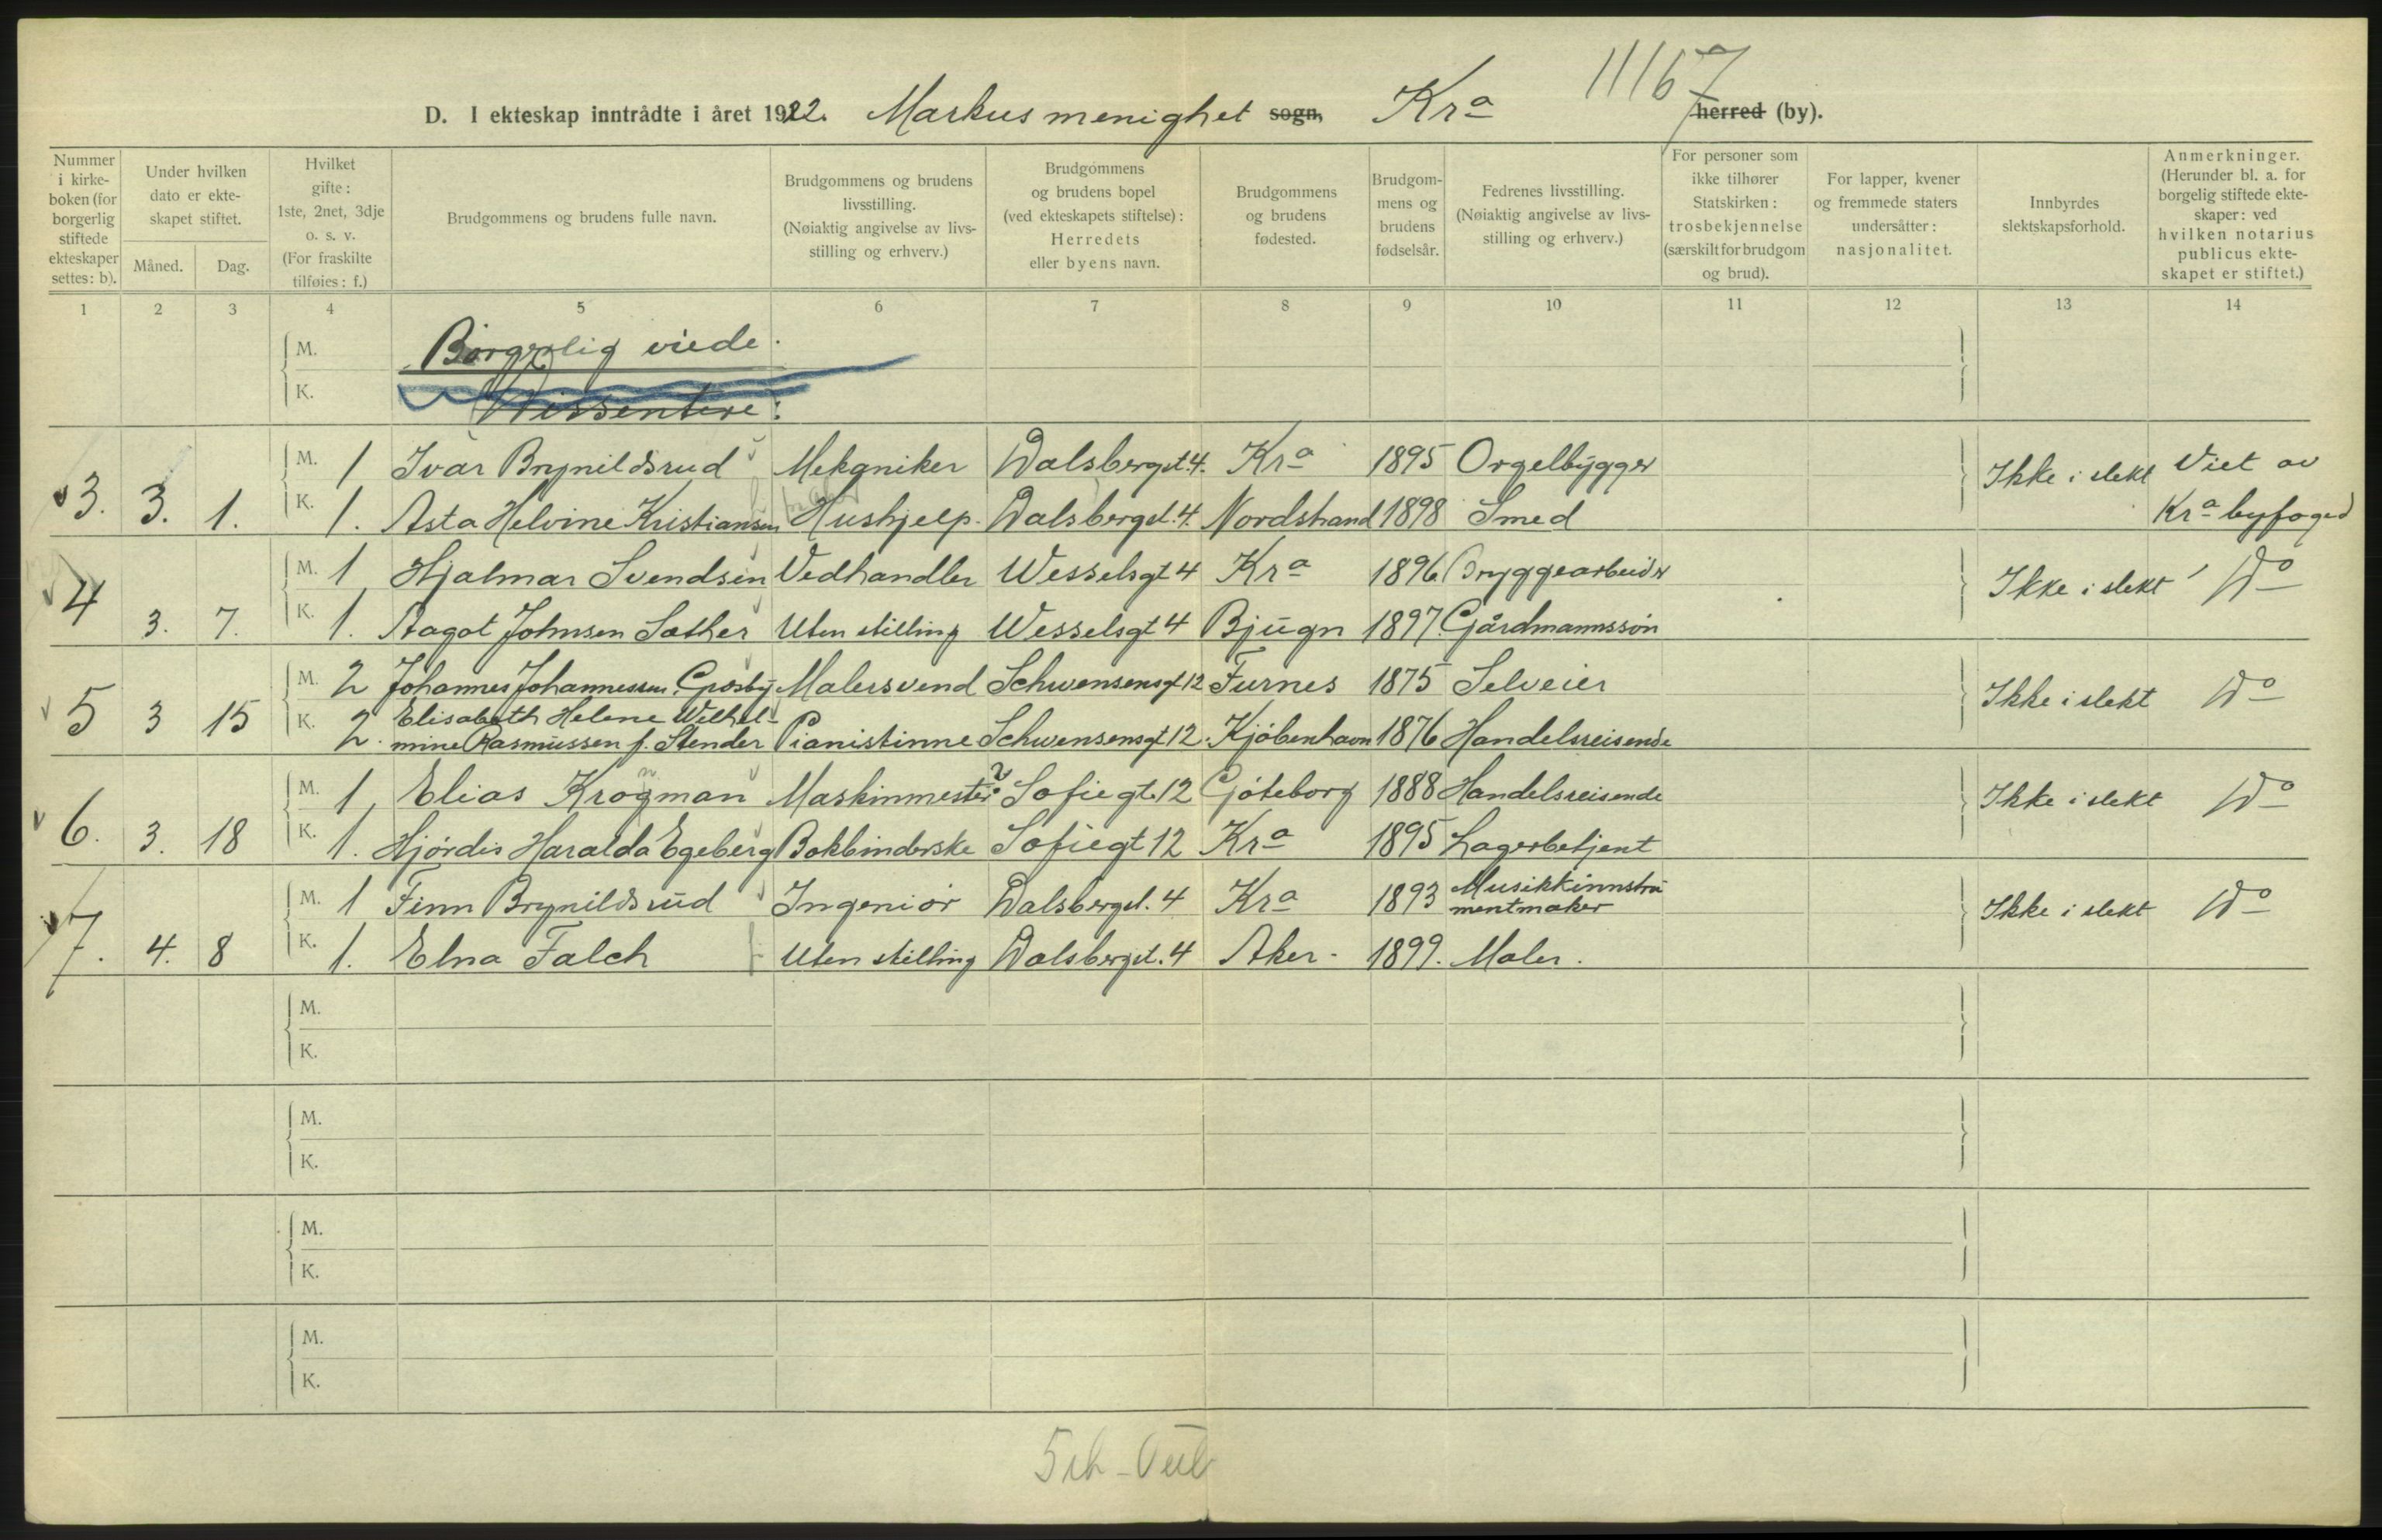 11167
D. I ekteskap inntrådte i året 1922. Markus menighet sogn, Kra herred (by).
Nummer i kirkeboken (for borgerlig stiftede ekteskaper settes: b).
Under hvilken dato er ekteskapet stiftet.
Måned.
Dag.
Hvilket gifte: 1ste, 2net, 3dje o. s. v. (For fraskilte tilføies: f.)
Brudgommens og brudens fulle navn.
Brudgommens og brudens livsstilling. (Nøiaktig angivelse av livsstilling og erhverv.)
Brudgommens og brudens bopel (ved ekteskapets stiftelse): Herredets eller byens navn.
Brudgommens og brudens fødested.
Brudgommens og brudens fødselsår.
Fedrenes livsstilling. (Nøiaktig angivelse av livsstilling og erhverv.)
For personer som ikke tilhører Statskirken: trosbekjennelse (særskilt for brudgom og brud).
For lapper, kvener og fremmede staters undersåtter: nasjonalitet.
Innbyrdes slektskapsforhold.
Anmerkninger. (Herunder bl. a. for borgelig stiftede ekteskaper: ved hvilken notarius publicus ekteskapet er stiftet.)
1 2 3 4 5 6 7 8 9 10 11 12 13 14
M. Borgerlig viede.
K. Dissentere:
M. 1 Ivar Brynildsrud Mekaniker Dalsbergst. 4. Kra 1895 Orgelbygger Ikke i slekt Viet av
3. 3. 1. K. 1. Asta Helvine Kristiansen Hushjelp. Dalsbergst. 4. Nordstrand 1898 Smed Kra byfoged
M. 1 Hjalmar Svendsen Vedhandler Wesselsgt 4 Kra 1896 Bryggearbeider Ikke i slekt Do
4 3. 7. K. 1. Aagot Johnsen Sæther Uten stilling Wesselsgt 4 Bjugn 1897 Gårdmannssøn
M. 2 Johannes Johannessen Grosby Malersvend Schwensensgt 12 Furnes 1875 Selveier Ikke i slekt Do
5 3 15 K. 2. Elisabeth Helene Wilhel-
mine Rasmussen f. Stender Pianistinne Schwensensgt 12. Kjøbenhavn 1876 Handelsreisende
M. 1 Elias Krogman Maskinmester Sofiegt. 12 Göteborg 1888 Handelsreisende Ikke i slekt Do
6. 3. 18 K. 1. Hjørdis Haralda Egeberg Bokbinderske Sofiegt 12 Kra 1895 Lagerbetjent
M. 1 Finn Brynildsrud Ingeniør Dalsbergst. 4 Kra 1893 Musikkinnstru
mentmaker Ikke i slekt Do
7. 4. 8 K. 1. Elna Falch Uten stilling Dalsbergst. 4 Aker. 1899. Maler.
M.
K.
M.
K.
M.
K.
M.
K.